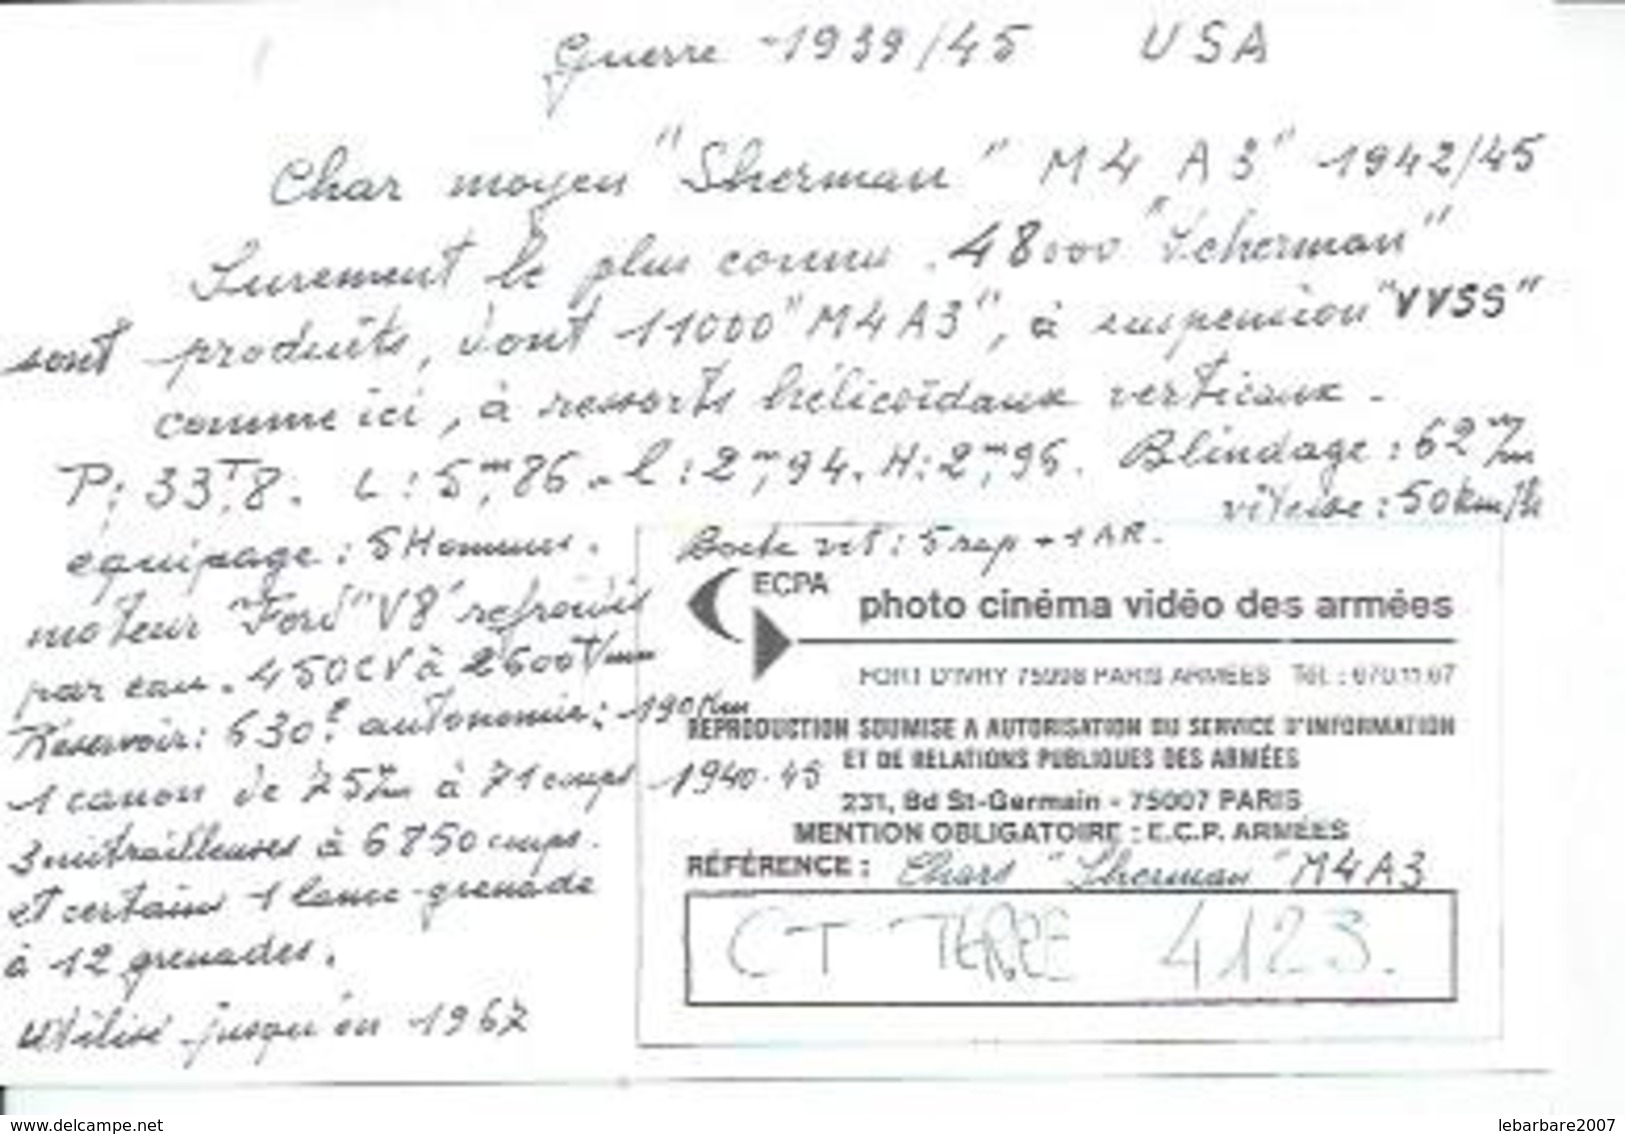 Guerre 1939/45 USA
Char moyen "Sherman" M4 A3" 1942/45
Surement le plus connu. 48000 "Scherman"
sont produits, dont 11000 "M4A3", à suspension "VVSS"
comme ici, à ressorts hélicoïdaux verticaux.
P: 33T,8. L: 5m,86. l: 2m,94. H: 2m,96. Blindage: 62 m/m
vitesse: 50km/h
équipage: 5 Hommes. Boite vit: 5 rap + 1 AR.
moteur "Ford" "V8" refroidis
par eau. 450CV à 2600T/mn
Réservoir: 630l autonomie: 190Km
1 canon de 75m/m à 71 coups 1940-45
3 mitrailleuses à 6850 coups.
et certains 1 lance-grenade
à 12 grenades.
utilisé jusqu'en 1967
ECPA
photo cinéma vidéo des armées
FORT D'IVRY 75998 PARIS ARMÉES Tél. : 670.11.67
REPRODUCTION SOUMISE A AUTORISATION DU SERVICE D'INFORMATION
ET DE RELATIONS PUBLIQUES DES ARMÉES
231, Bd St-Germain - 75007 PARIS
MENTION OBLIGATOIRE : E.C.P. ARMÉES
RÉFÉRENCE : Chars "Sherman" M4A3
CT TERRE 4123.
www.delcampe.net
lebarbare2007